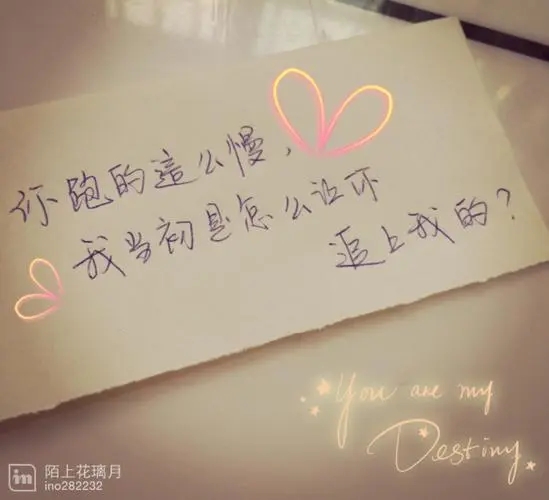 你跑的這么慢，
我当初是怎么让你
追上我的？
You are my
Destiny
陌上花璃月
ino282232